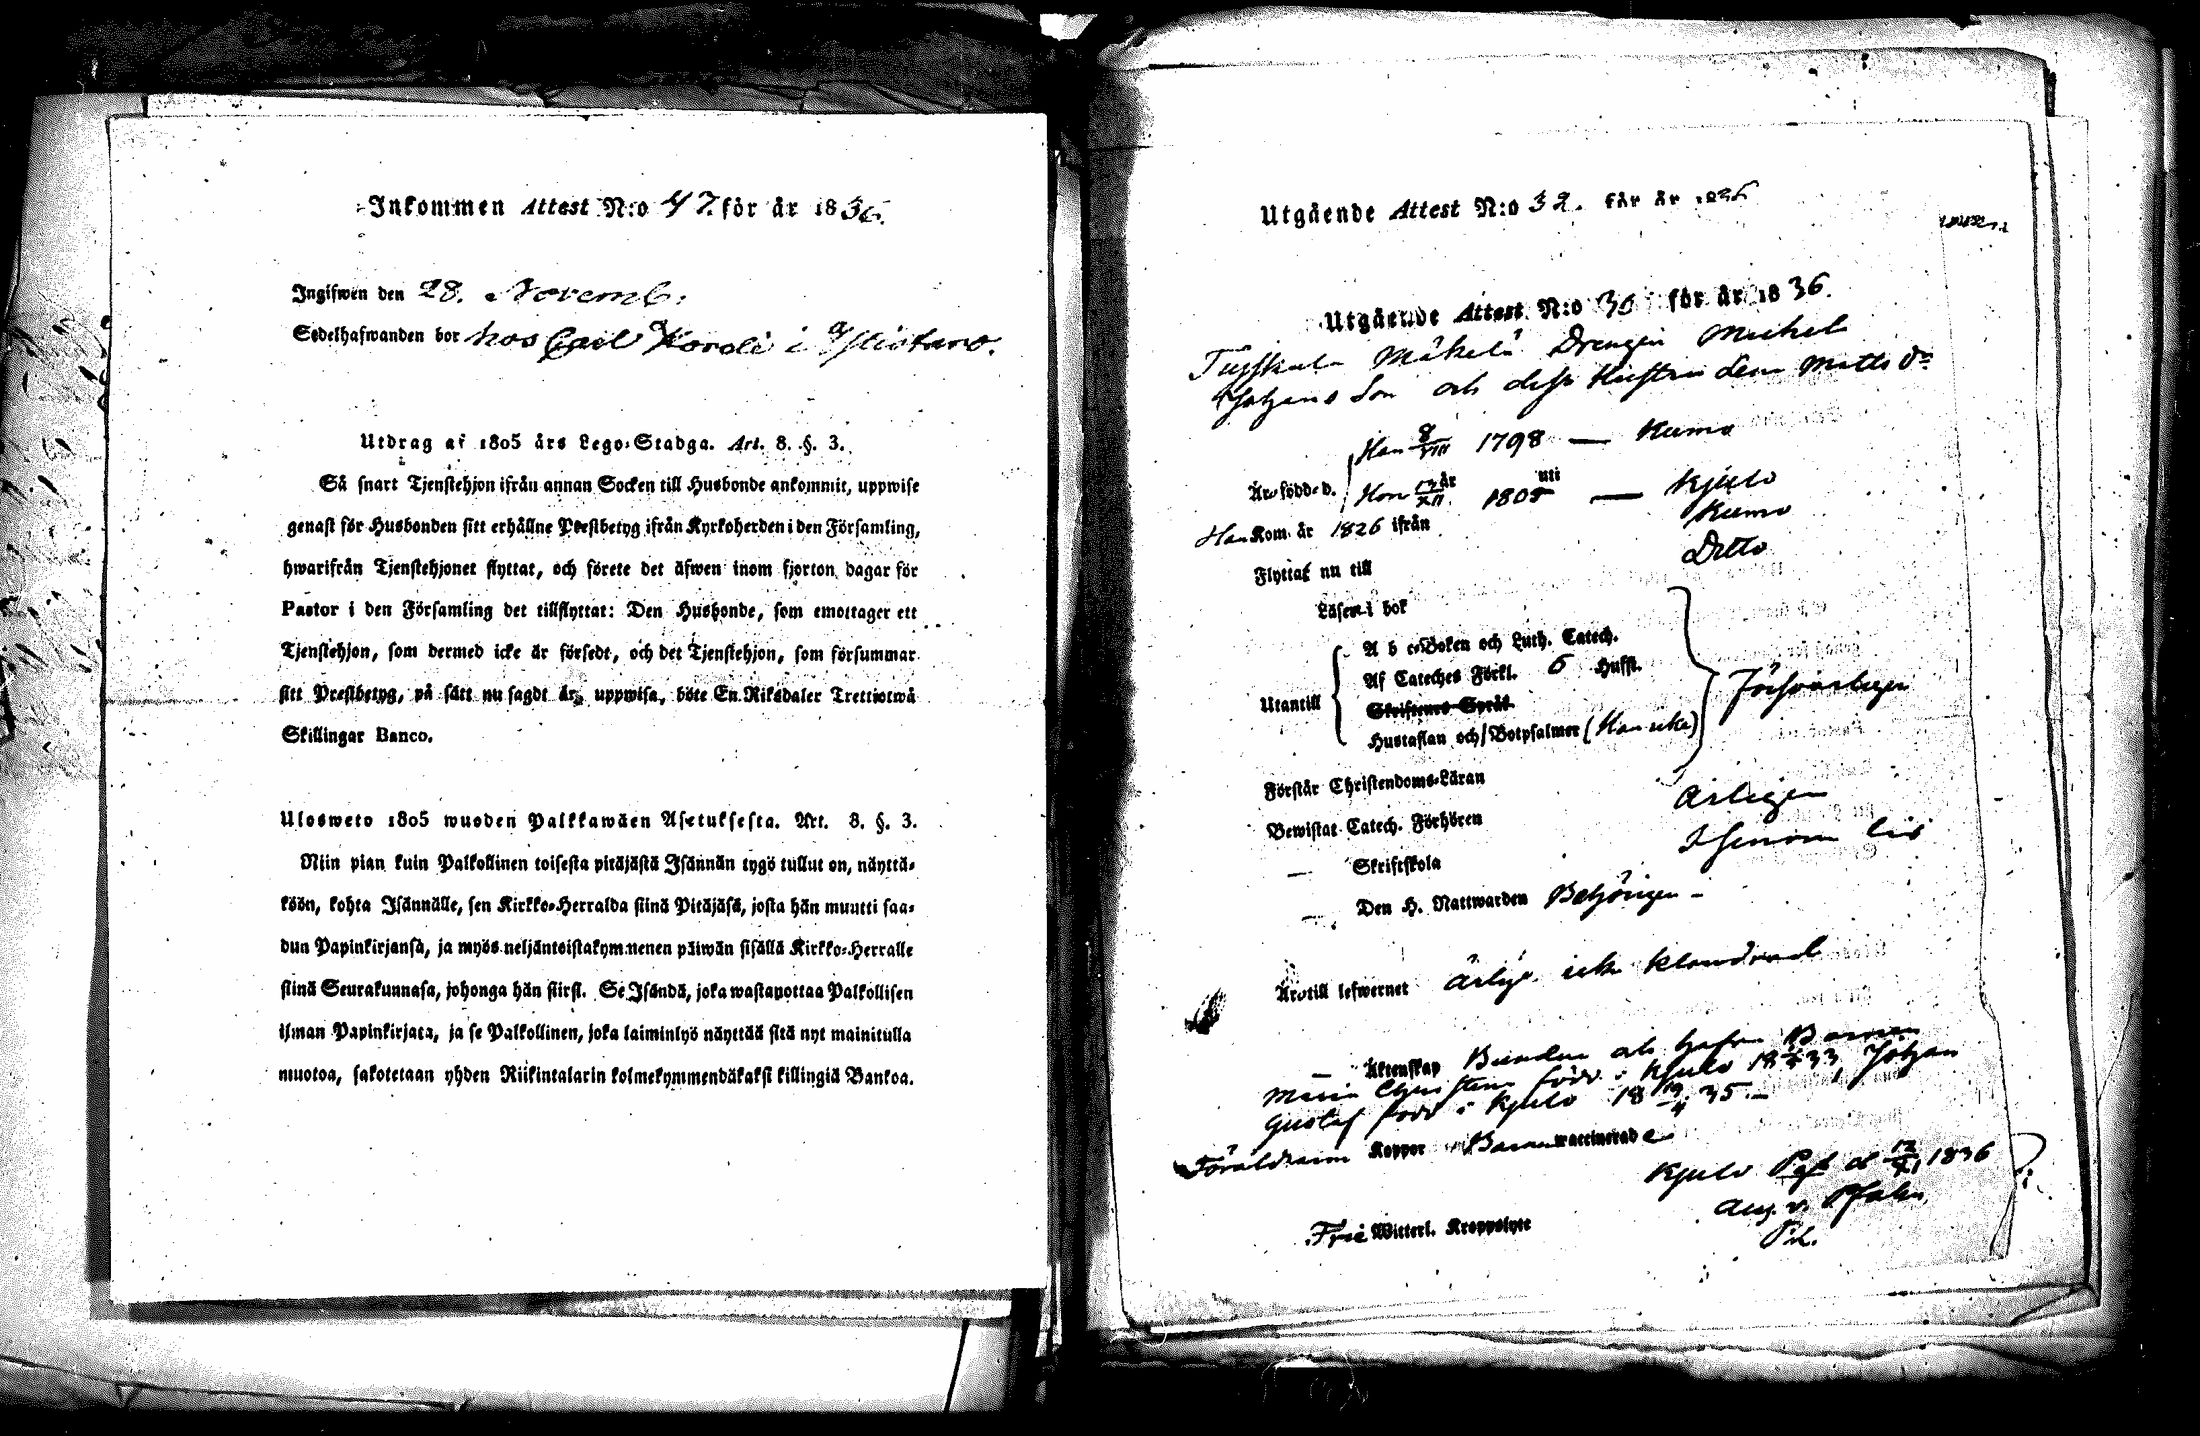 Inkommen Attest N:o 47. för år 1836.
Ingifwen den 28. Novemb:
Sedelhafwanden bor hos Carl i
Utdrag af 1805 års Lego-Stadga. Art. 8. §. 3.
Så snart Tjenstehjon ifrån annan Socken till Husbonde ankommit, uppwise
genast för Husbonden sitt erhållne Prestbetyg ifrån Kyrkoherden i den Församling,
hwarifrån Tjenstehjonet flyttat, och förete det äfwen inom fjorton dagar för
Pastor i den Församling det tillflyttat: Den Husbonde, som emottager ett
Tjenstehjon, som dermed icke är försedt, och det Tjenstehjon, som försummar
sitt Prestbetyg, på sätt nu sagdt är, uppwisa, böte En Riksdaler Trettiotwå
Skillingar Banco.
Ulosweto 1805 wuoden Palkkawäen Asetuksesta. Art. 8. §. 3.
Niin pian kuin Palkollinen toisesta pitäjästä Isännän tygö tullut on, näyttä-
köön, kohta Isännälle, sen Kirkko-Herralda siinä Pitäjäsä, josta hän muutti saa-
dun Papinkirjansa, ja myös neljäntoistakymmenen päiwän sisällä Kirkko-Herralle
siinä Seurakunnasa, johonga hän siirsi. Se Isändä, joka wastanottaa Palkollisen
ilman Papinkirjata, ja se Palkollinen, joka laiminlyö näyttää sitä nyt mainitulla
muotoa, sakotetaan yhden Riikintalarin kolmekymmendäkaksi killingiä Bankoa.
Utgående Attest N:o 32. för år 1836
Utgående Attest N:o 36 för år 1836.
Mäkelä Drengen Michel
Johans Son och dess Hustru Lena Matts dr
Han 8/VIII 1798 — Kumo
Äro födde d. Hon 13/XII år 1805 uti — Kjulo
Han Kom år 1826 ifrån Kumo
Flyttat nu till Ditto
Läsen i bok
A b c-Boken och Luth. Catech.
Utantill Af Cateches Förkl. 6 Hufst.
Skriftenes Språk
Hustaflan och Botpsalmer (Han icke) Försvarligen
Förstår Christendoms-Läran
Bewistat Catech. Förhören Årligen
— Skriftskola Genom
— Den H. Nattwarden Behörigen -
Äro till lefwernet ärlige icke klandrad
— Äktenskap Bundne och hafva Barnen
Maria Christina född i Kjulo 33, Johan
Gustaf född i Kjulo 18 19/4 35.-
Föräldrarne Koppor Barnen waccinerade
Kjulo Pgd d 12/XI 1836
Aug. v. Pfaler
Frie Witterl. Kroppslyte